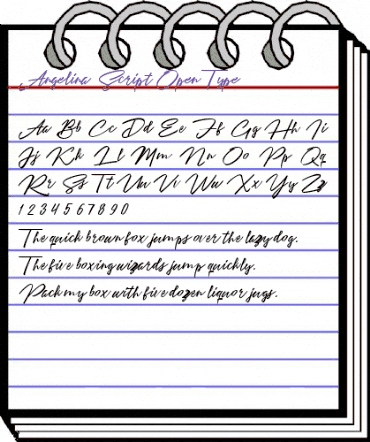 Angelina Script Open Type
Aa Bb Cc Dd Ee Ff Gg Hh Ii
Jj Kk Ll Mm Nn Oo Pp Qq
Rr Ss Tt Uu Vv Ww Xx Yy Zz
1 2 3 4 5 6 7 8 9 0
The quick brown fox jumps over the lazy dog.
The five boxing wizards jump quickly.
Pack my box with five dozen liquor jugs.